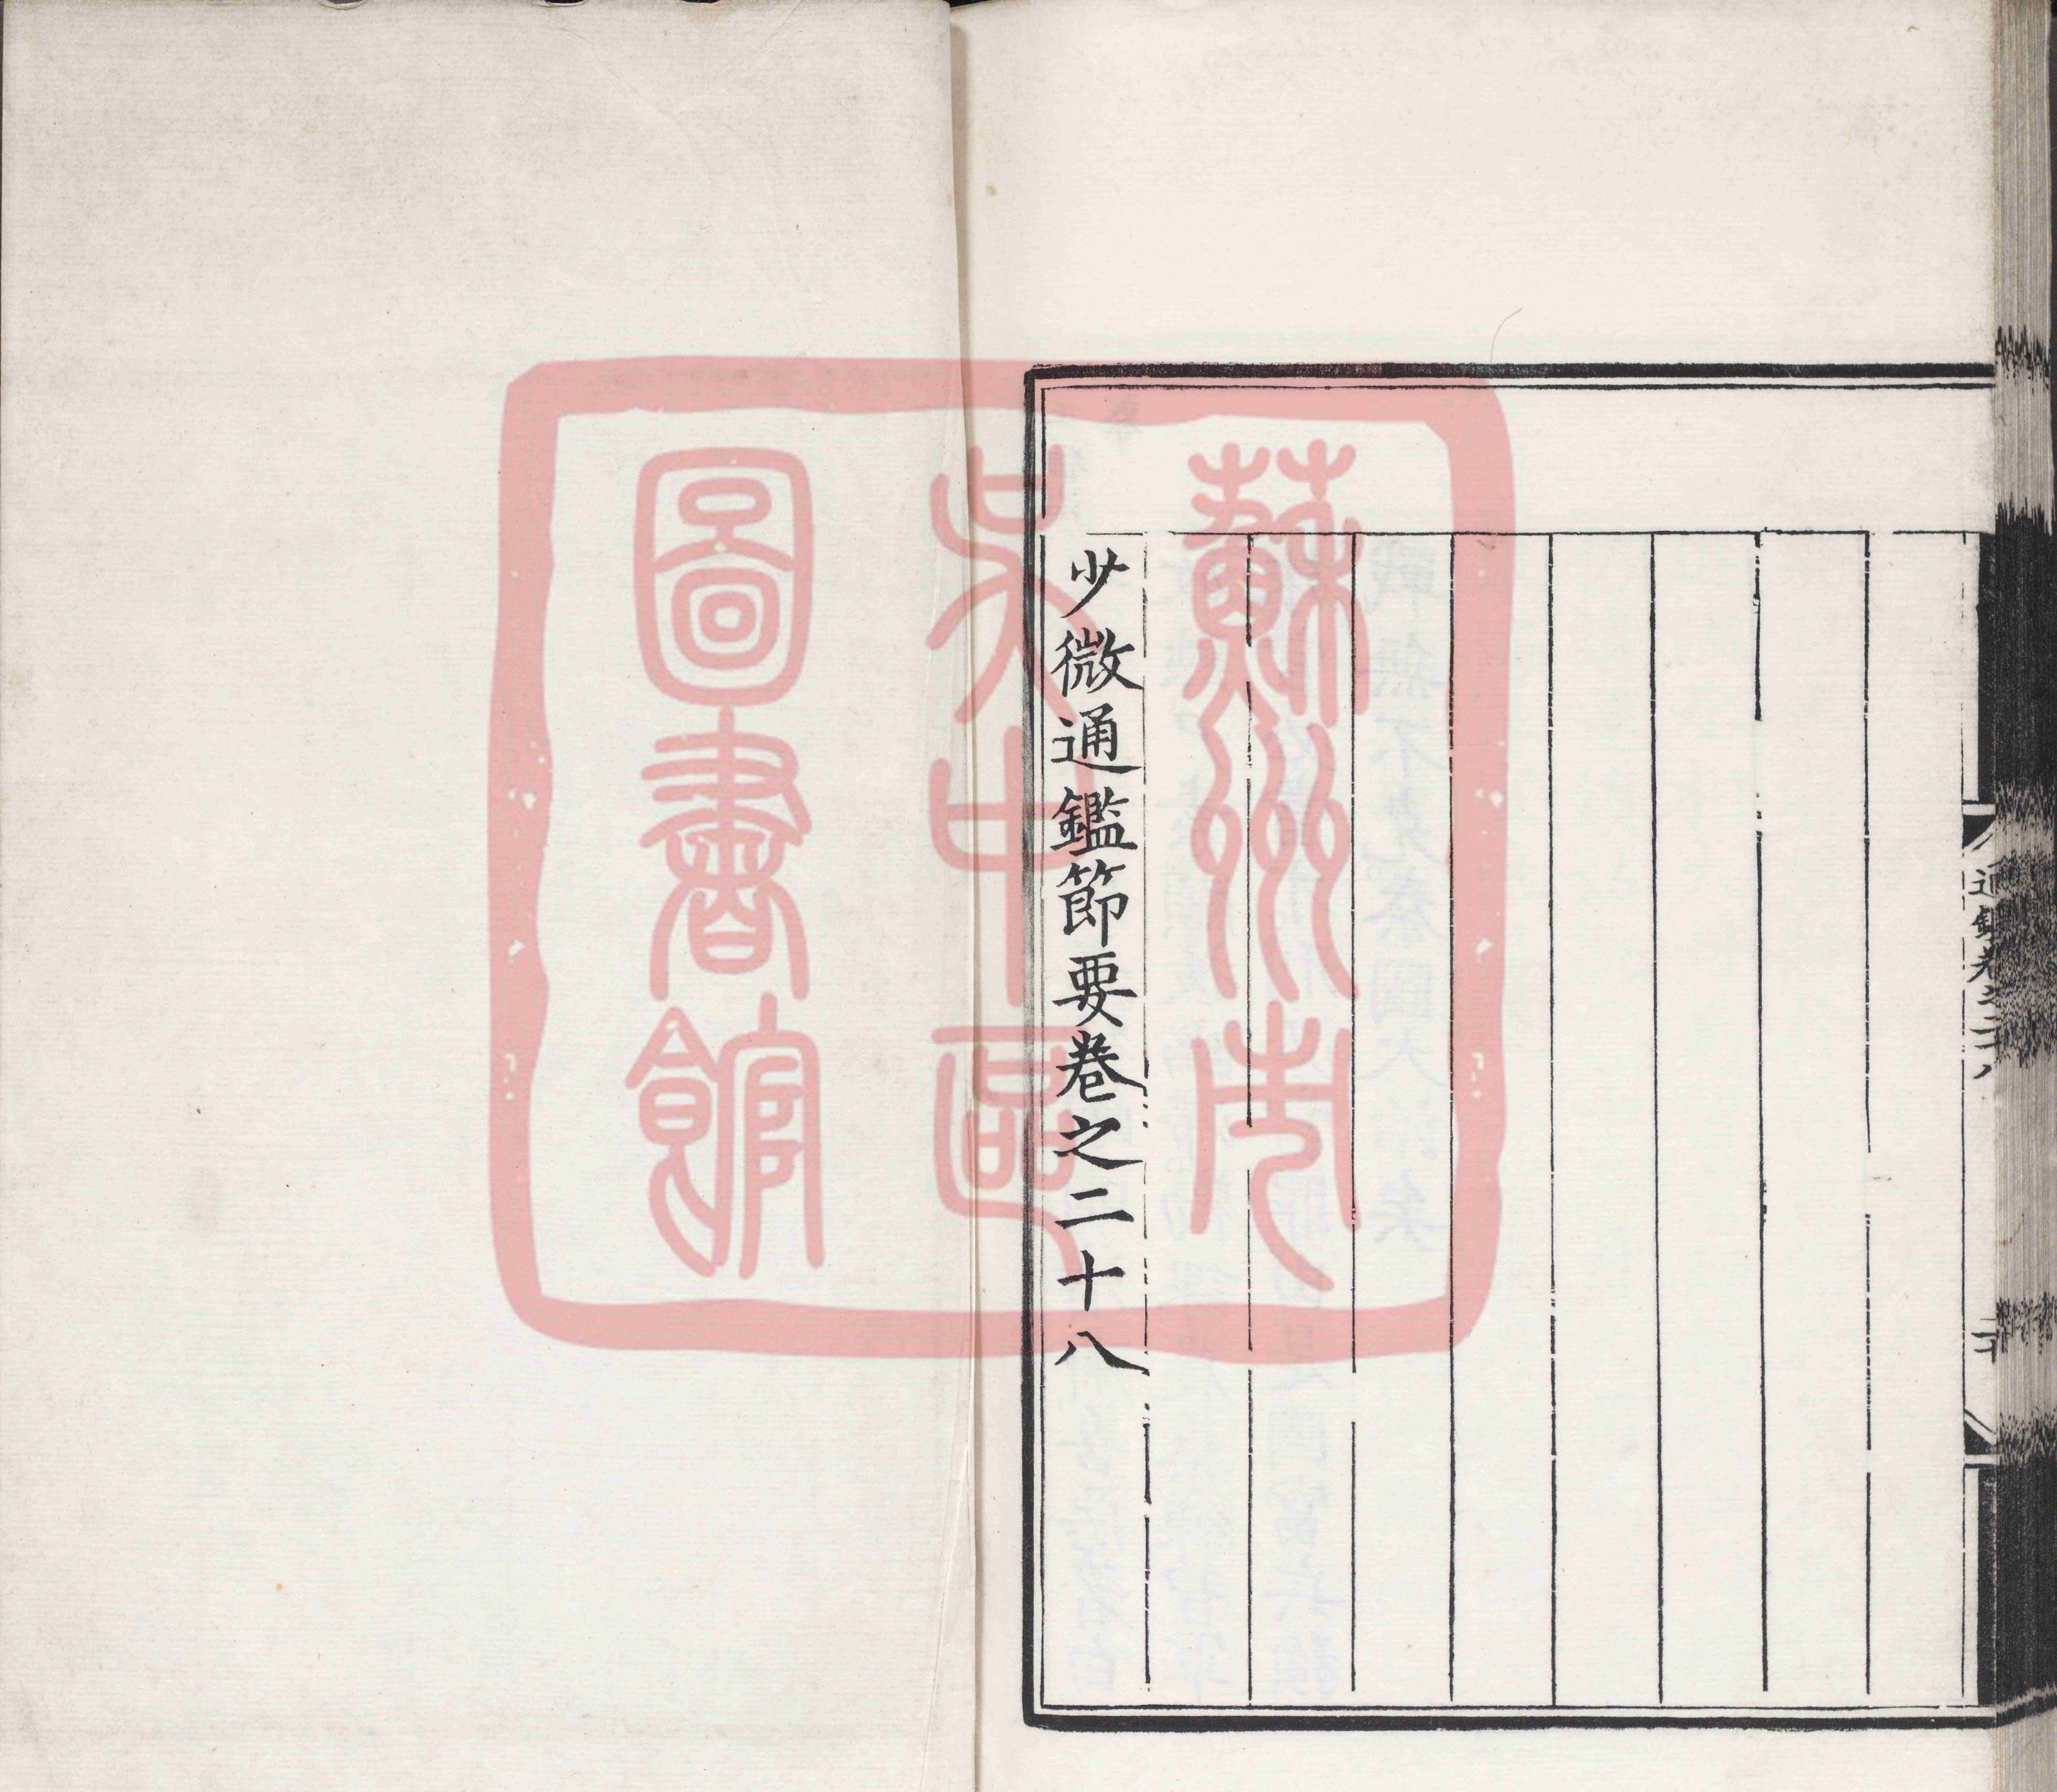 通鑑卷之二十八
少微通鑑節要卷之二十八
蘇州市
吳中區
圖書館